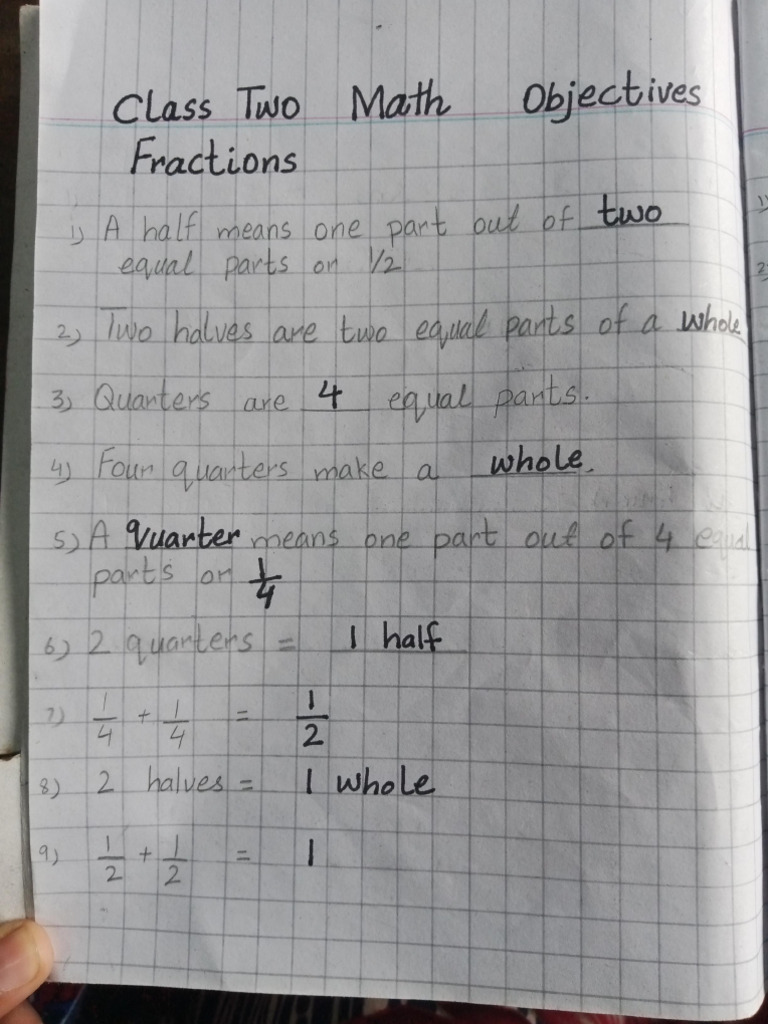 Class Two Math Objectives
Fractions
1) A half means one part out of two
equal parts or 1/2
2) Two halves are two equal parts of a whole
3) Quarters are 4 equal parts.
4) Four quarters make a whole.
5) A quarter means one part out of 4 equal
parts or 1/4
6) 2 quarters = 1 half
7) 1/4 + 1/4 = 1/2
8) 2 halves = 1 whole
9) 1/2 + 1/2 = 1